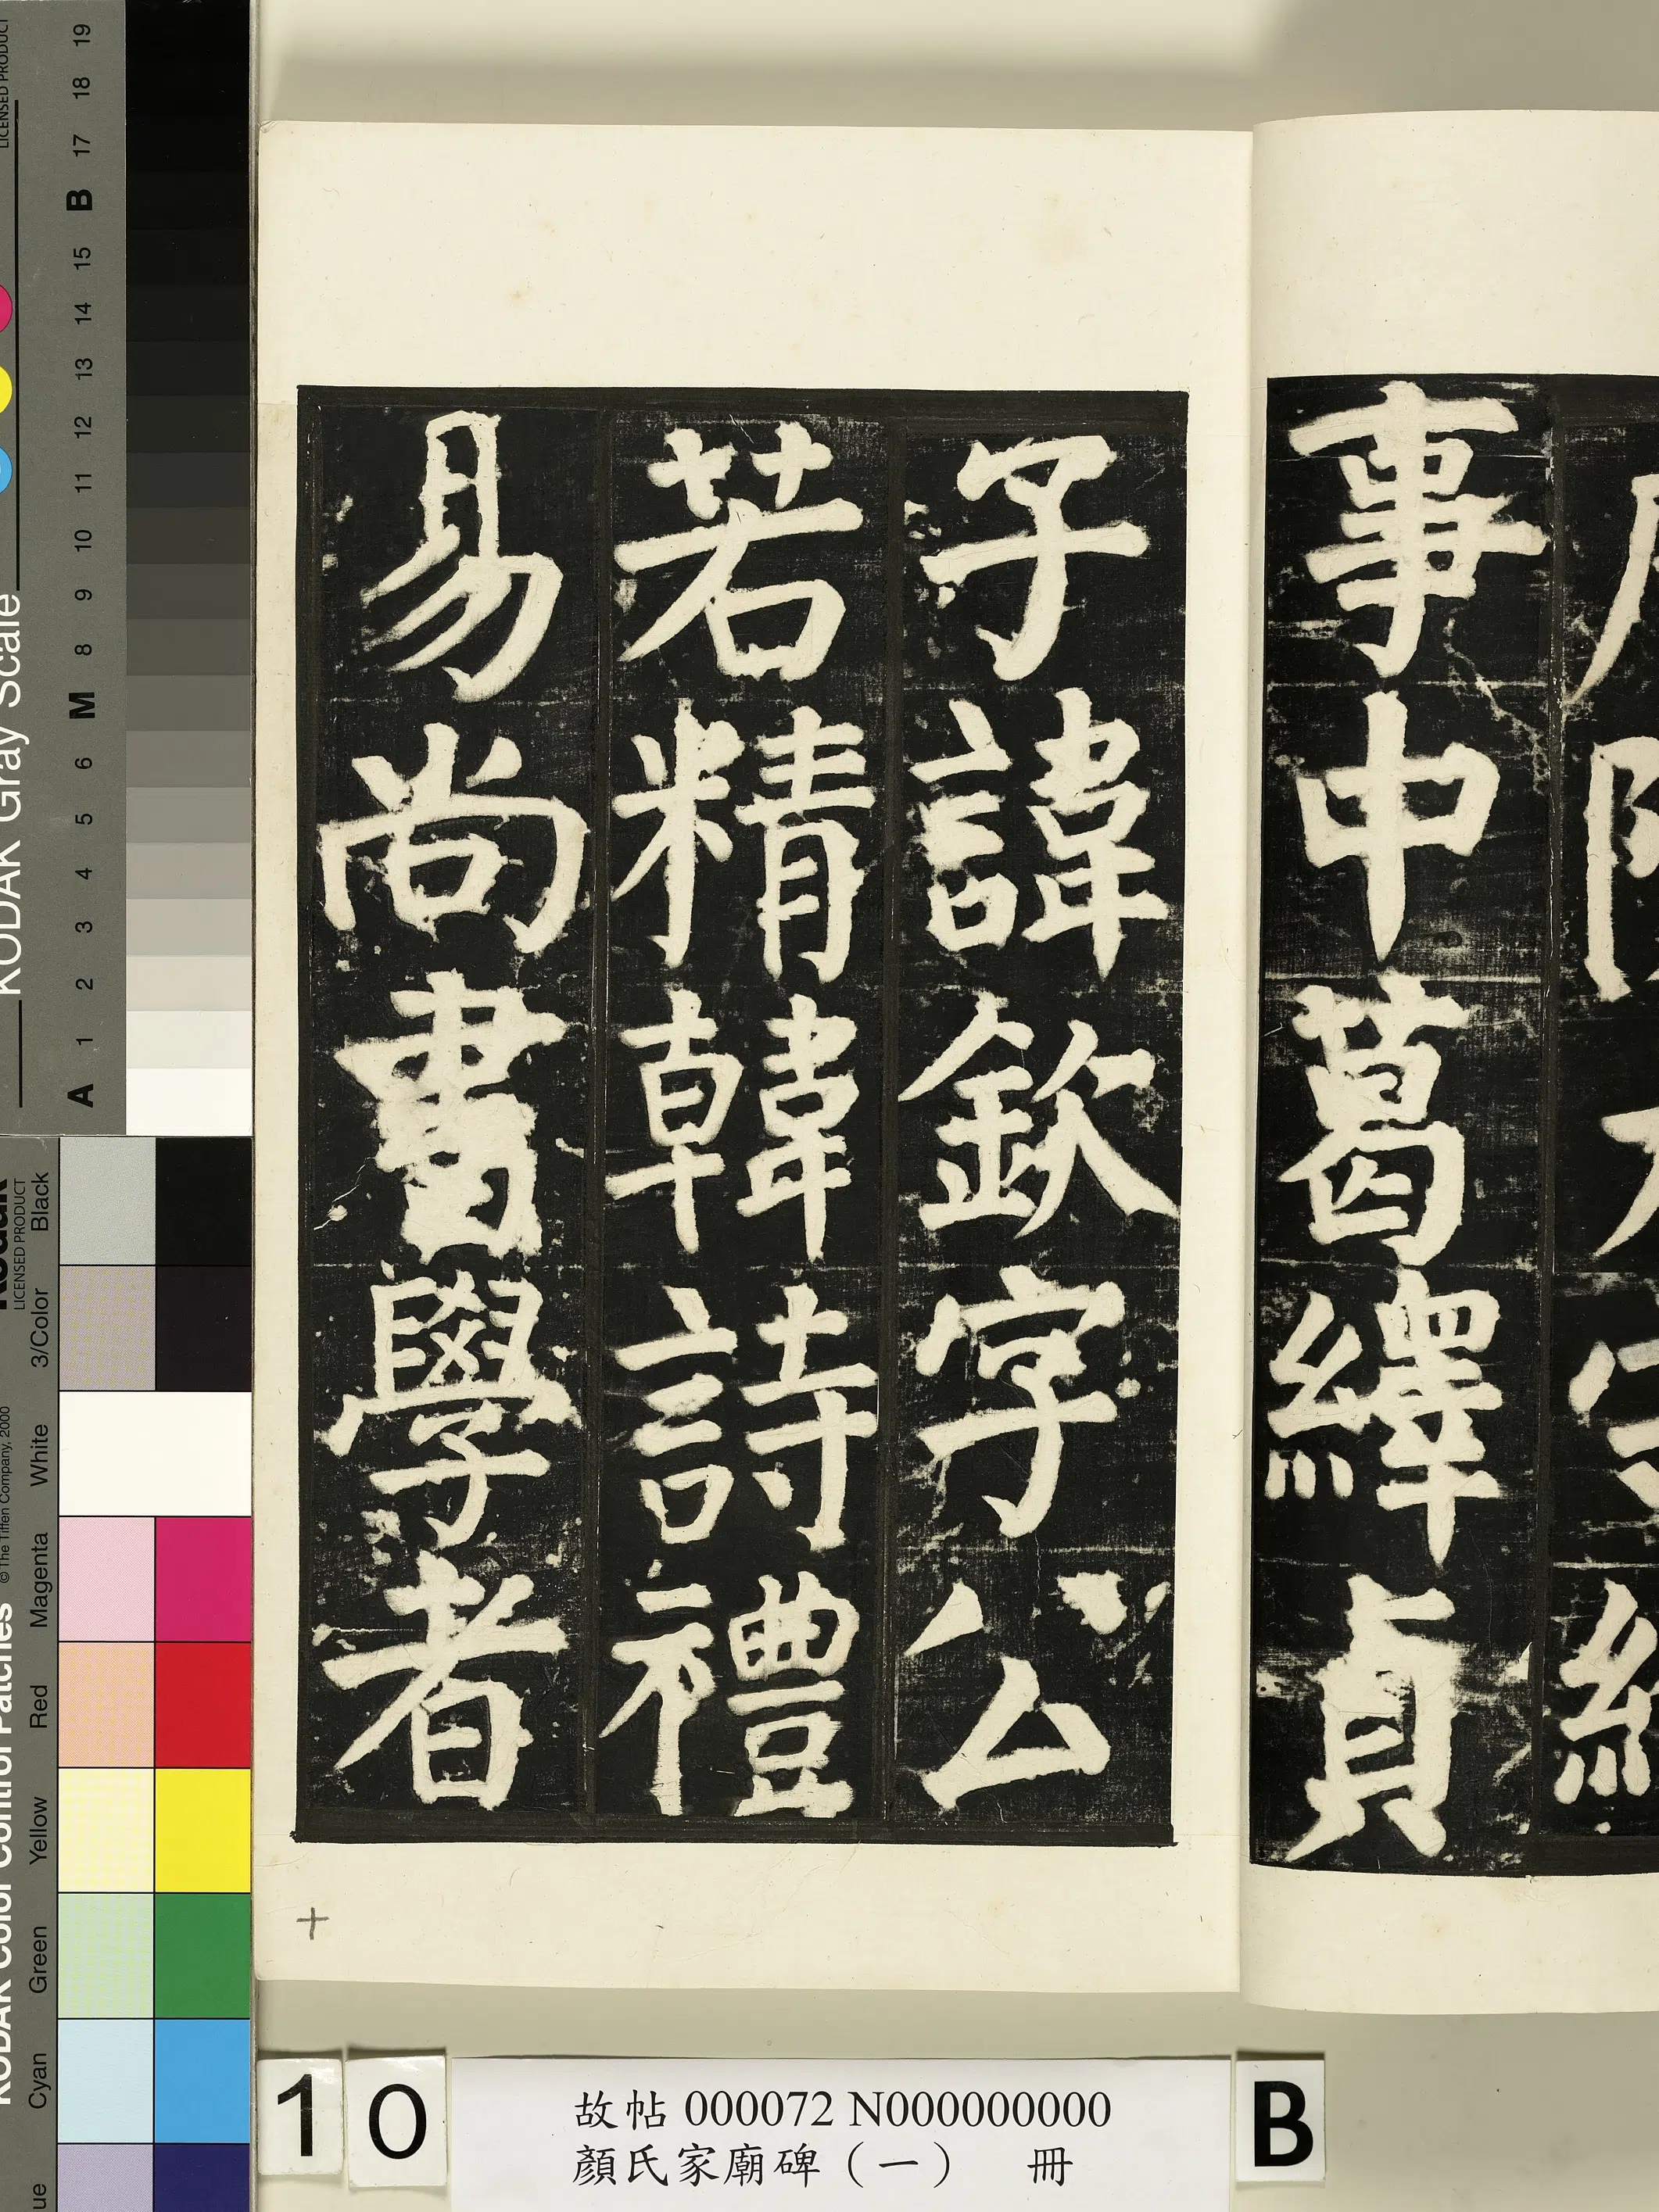 事中葛繹貞
子諱欽字公
若精韓詩禮
易尚書學者
十
10
故帖 000072 N000000000
顏氏家廟碑（一） 冊
B
KODAK Gray Scale
LICENSED PRODUCT
A 1 2 3 4 5 6 M 8 9 10 11 12 13 14 15 B 17 18 19
KODAK Color Control Patches
© The Tiffen Company, 2000
Kodak
LICENSED PRODUCT
Cyan Green Yellow Red Magenta White 3/Color Black